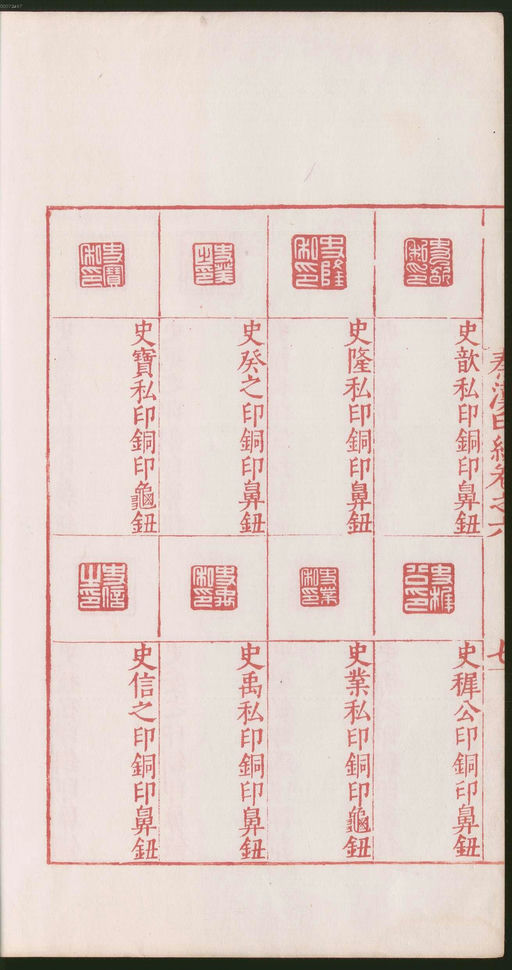 秦漢印統卷之六
七
史歆私印銅印鼻鈕
史隆私印銅印鼻鈕
史癸之印銅印鼻鈕
史寶私印銅印龜鈕
史穉公印銅印鼻鈕
史業私印銅印龜鈕
史禹私印銅印鼻鈕
史信之印銅印鼻鈕